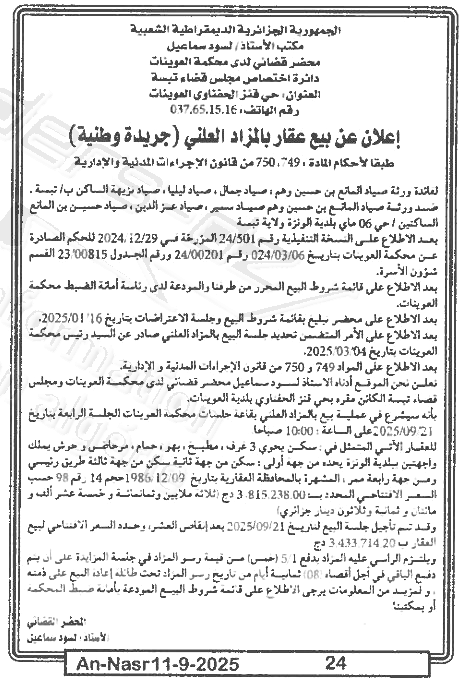 الجمهورية الجزائرية الديمقراطية الشعبية
مكتب الأستاذ/ لسود سماعيل
محضر قضائي لدى محكمة العوينات
دائرة اختصاص مجلس قضاء تبسة
العنوان: حي قنز الحفناوي العوينات
رقم الهاتف: 037.65.15.16
إعلان عن بيع عقار بالمزاد العلني (جريدة وطنية)
طبقا لأحكام المادة: 749، 750 من قانون الإجراءات المدنية والإدارية
لعائدة ورثة صياد المانع بن حسين وهم: صياد جمال، صياد ليليا، صياد نزيهة الساكن ب/ تبسة.
ضد ورثة صياد المانع بن حسين وهم صياد سمير، صياد عز الدين، صياد حسين بن المانع
الساكنين / حي 06 ماي بلدية الونزة ولاية تبسة
بعد الاطلاع على النسخة التنفيذية رقم 24/501 المؤرخة في 2024/12/29 للحكم الصادرة
عن محكمة العوينات بتاريخ 024/03/06 رقم 24/00201 ورقم الجدول 23/00815 القسم
شؤون الأسرة.
بعد الاطلاع على قائمة شروط البيع المحرر من طرفنا والمودعة لدى رئاسة أمانة الضبط محكمة
العوينات.
بعد الاطلاع على محضر تبليغ بقائمة شروط البيع وجلسة الاعتراضات بتاريخ 2025/01/16.
بعد الاطلاع على الأمر المتضمن تحديد جلسة البيع بالمزاد العلني صادر عن السيد رئيس محكمة
العوينات بتاريخ 2025/03/04.
بعد الاطلاع على المواد 749 و 750 من قانون الإجراءات المدنية و الإدارية.
نعلن نحن الموقع أدناه الاستاذ لسود سماعيل محضر قضائي لدى محكمة العوينات ومجلس
قضاء تبسة الكائن مقره بحي قنز الحفناوي بلدية العوينات.
بأنه سيشرع في عملية بيع بالمزاد العلني بقاعة جلسات محكمة العوينات الجلسة الرابعة بتاريخ
2025/09/21 على الساعة: 10:00 صباحا
للعقار الآتي المتمثل في: سكن يحوي 3 غرف، مطبخ، بهو، حمام، مرحاض و حوش يملك
واجهتين ببلدية الونزة يحده من جهة أولى: سكن من جهة ثانية سكن من جهة ثالثة طريق رئيسي
ومن جهة رابعة ممر، المشهرة بالمحافظة العقارية بتاريخ 1986/12/09 حجم 14 رقم 98 حسب
السعر الافتتاحي المحدد ب 3.815.238.00 دج (ثلاثة ملايين وثمانمائة و خمسة عشر ألف و
مائتان و ثمانية وثلاثون دينار جزائري)
وقد تم تأجيل جلسة البيع لتاريخ 2025/09/21 بعد إنقاص العشر، وحدد السعر الافتتاحي لبيع
العقار ب 3 433 714 20 دج
ويلتزم الراسي عليه المزاد بدفع 5/1 (خمس) من قيمة رسو المزاد في جلسة المزايدة على أن يتم
دفع الباقي في أجل أقصاه (08) ثمانية أيام من تاريخ رسو المزاد تحت طائلة إعادة البيع على ذمته
، ولمزيد من المعلومات يرجى الاطلاع على قائمة شروط البيع المودعة بأمانة ضبط المحكمة
أو بمكتبنا
المحضر القضائي
الأستاذ: لسود سماعيل
An-Nasr11-9-2025 24